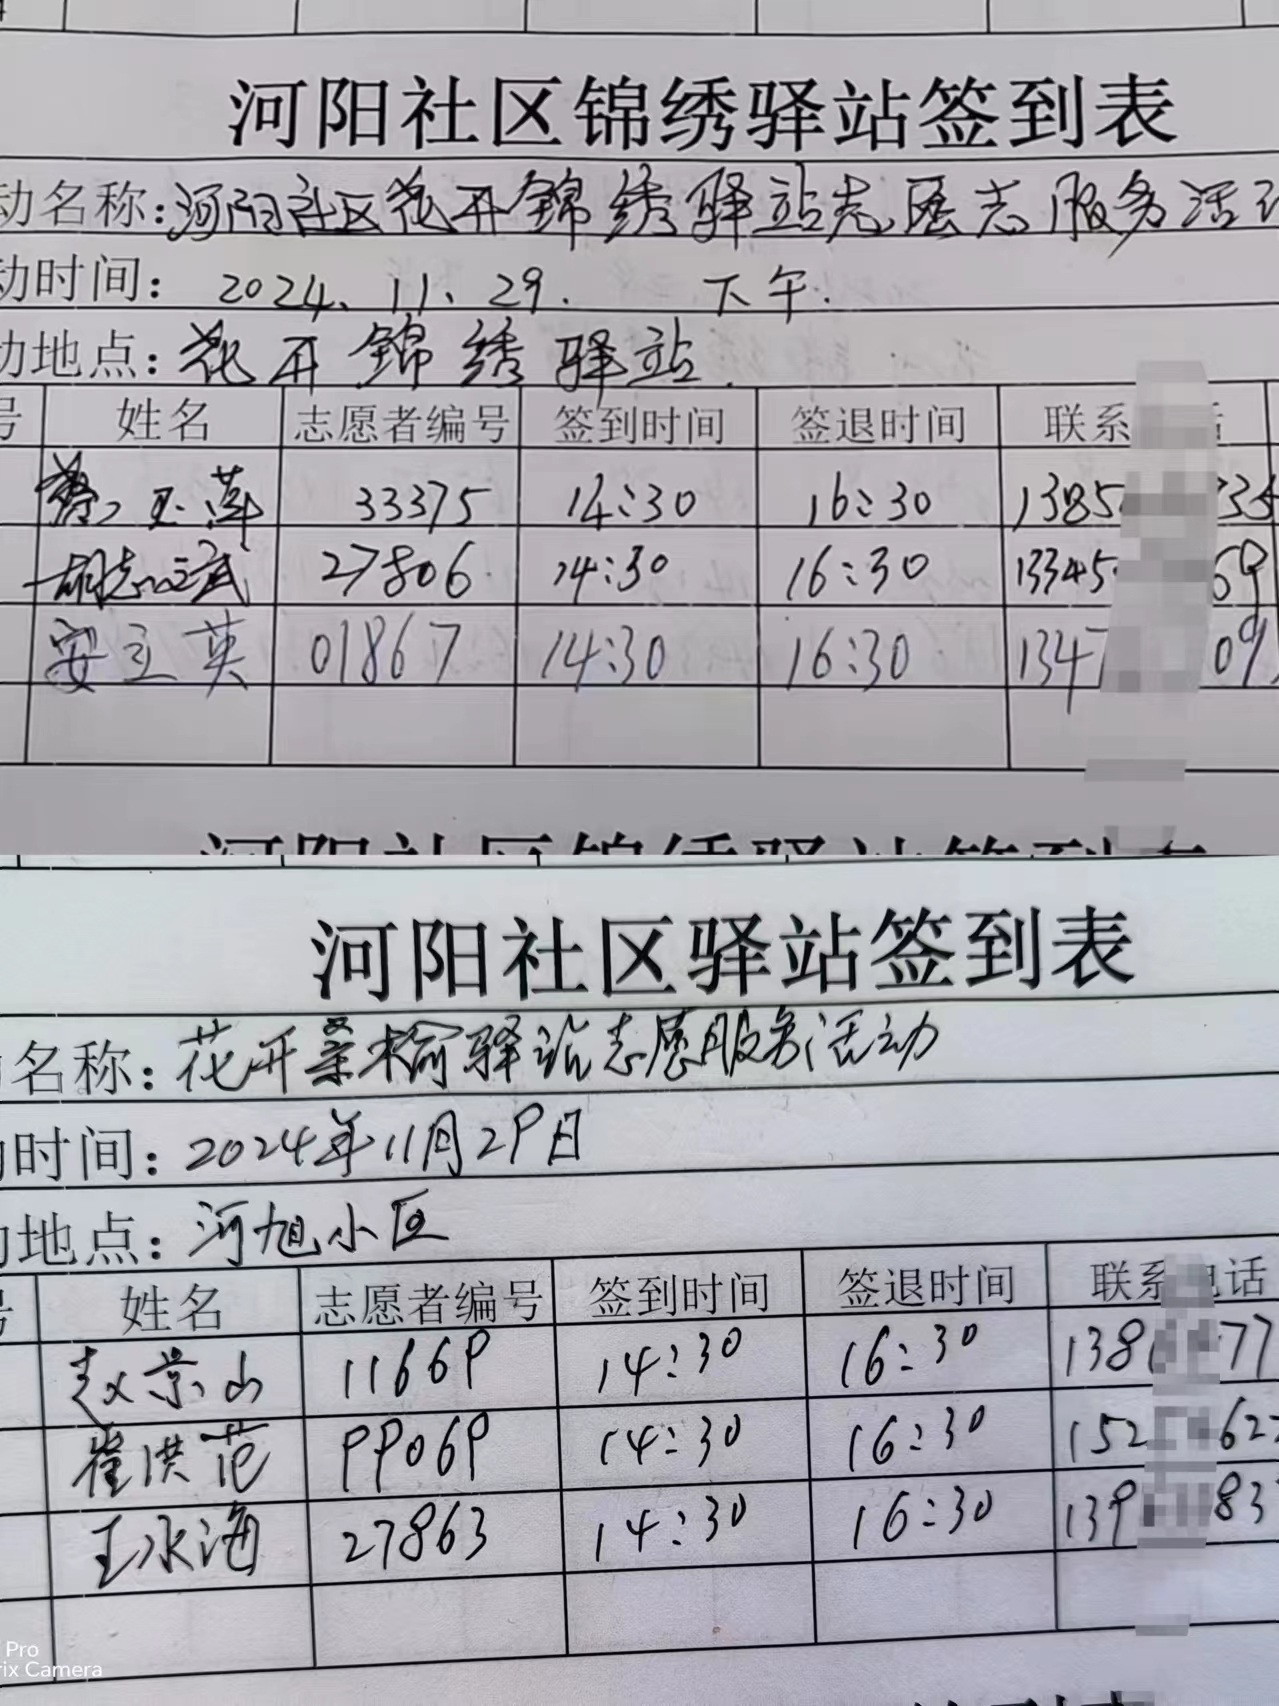 河阳社区锦绣驿站签到表
动名称:河阳社区花开錦绣驿站志愿志服务活动
动时间: 2024、11、29. 下午.
动地点:花开錦绣驿站.
号 姓名 志愿者编号 签到时间 签退时间 联系 话
玉萍 33375 14:30 16:30 1385 334
胡志斌 27806 14:30 16:30 13345 69
安立英 01867 14:30 16:30 1347 09
河阳社区锦绣驿站签到表
河阳社区驿站签到表
名称:花开桑榆驿站志愿服务活动
时间:2024年11月29日
地点:河旭小区
号 姓名 志愿者编号 签到时间 签退时间 联系电话
赵景山 11669 14:30 16:30 138 77
崔洪范 99069 14:30 16:30 152 62
王永海 27863 14:30 16:30 139 83
Pro
rix Camera